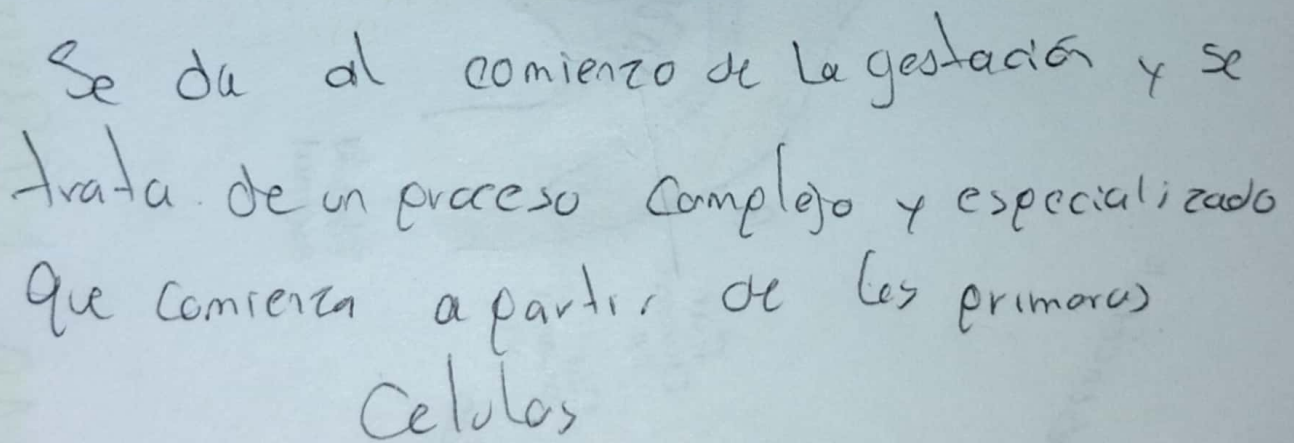 Se da al comienzo de la gestación y se
trata de un proceso complejo y especializado
que comienza a partir de las primeras
Celulas